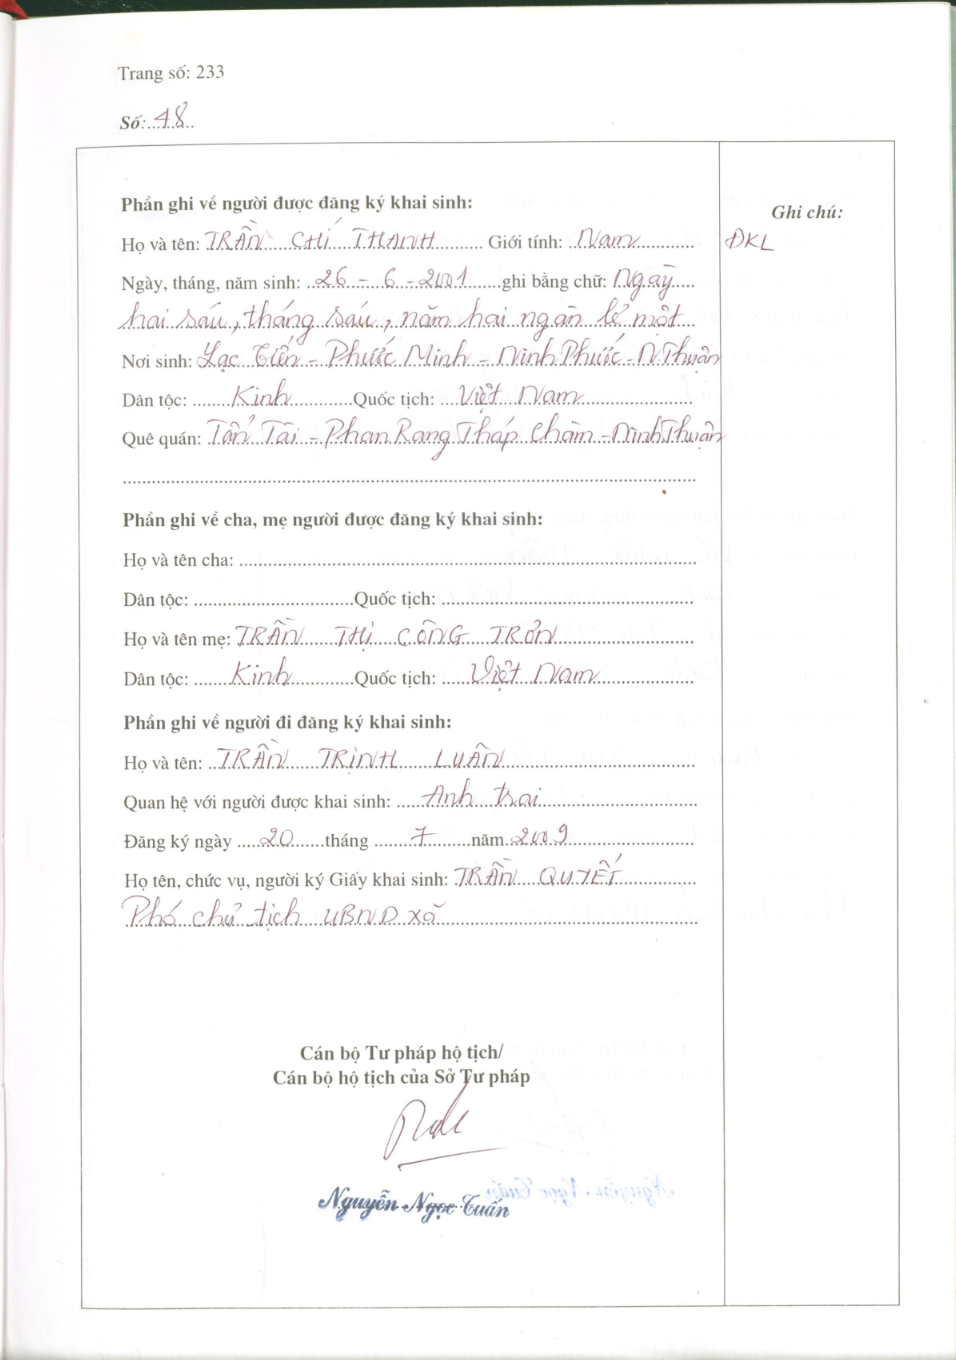 Trang số: 233
Số: 48
Phần ghi về người được đăng ký khai sinh:
Ghi chú:
Họ và tên: TRẦN CHÍ THANH Giới tính: Nam
ĐKL
Ngày, tháng, năm sinh: 26 - 6 - 2001 ghi bằng chữ: Ngày
hai sáu, tháng sáu, năm hai ngàn lẻ một
Nơi sinh: Lạc Tiến - Phước Minh - Ninh Phước - N.Thuận
Dân tộc: Kinh Quốc tịch: Việt Nam
Quê quán: Tấn Tài - Phan Rang Tháp Chàm - Ninh Thuận
Phần ghi về cha, mẹ người được đăng ký khai sinh:
Họ và tên cha:
Dân tộc: Quốc tịch:
Họ và tên mẹ: TRẦN THỊ CÔNG TRỞN
Dân tộc: Kinh Quốc tịch: Việt Nam
Phần ghi về người đi đăng ký khai sinh:
Họ và tên: TRẦN TRỊNH LUÂN
Quan hệ với người được khai sinh: Anh trai
Đăng ký ngày 20 tháng 7 năm 2009
Họ tên, chức vụ, người ký Giấy khai sinh: TRẦN QUYẾT
Phó chủ tịch UBND xã
Cán bộ Tư pháp hộ tịch/
Cán bộ hộ tịch của Sở Tư pháp
Nguyễn Ngọc Tuấn